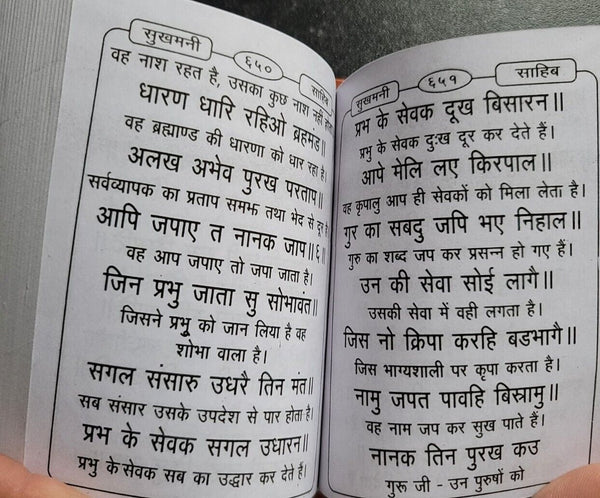 सुखमनी
६५०
साहिब
वह नाश रहत है, उसका कुछ नाश नहीं होता
धारण धारि रहिओ ब्रहमंड॥
वह ब्रह्माण्ड की धारणा को धार रहा है।
अलख अभेव पुरख परताप॥
सर्वव्यापक का प्रताप समझ तथा भेद से दूर है
आपि जपाए त नानक जाप॥६॥
वह आप जपाए तो जपा जाता है।
जिन प्रभु जाता सु सोभावंत॥
जिसने प्रभु को जान लिया है वह
शोभा वाला है।
सगल संसारु उधरै तिन मंत॥
सब संसार उसके उपदेश से पार होता है।
प्रभ के सेवक सगल उधारन॥
प्रभु के सेवक सब का उद्धार कर देते हैं।
सुखमनी
६५१
साहिब
प्रभ के सेवक दूख बिसारन॥
प्रभु के सेवक दुःख दूर कर देते हैं।
आपे मेलि लए किरपाल॥
वह कृपालु आप ही सेवकों को मिला लेता है।
गुर का सबदु जपि भए निहाल॥
गुरु का शब्द जप कर प्रसन्न हो गए हैं।
उन की सेवा सोई लागै॥
उसकी सेवा में वही लगता है।
जिस नो क्रिपा करहि बडभागै॥
जिस भाग्यशाली पर कृपा करता है।
नामु जपत पावहि बिस्रामु॥
वह नाम जप कर सुख पाते हैं।
नानक तिन पुरख कउ
गुरू जी - उन पुरुषों को